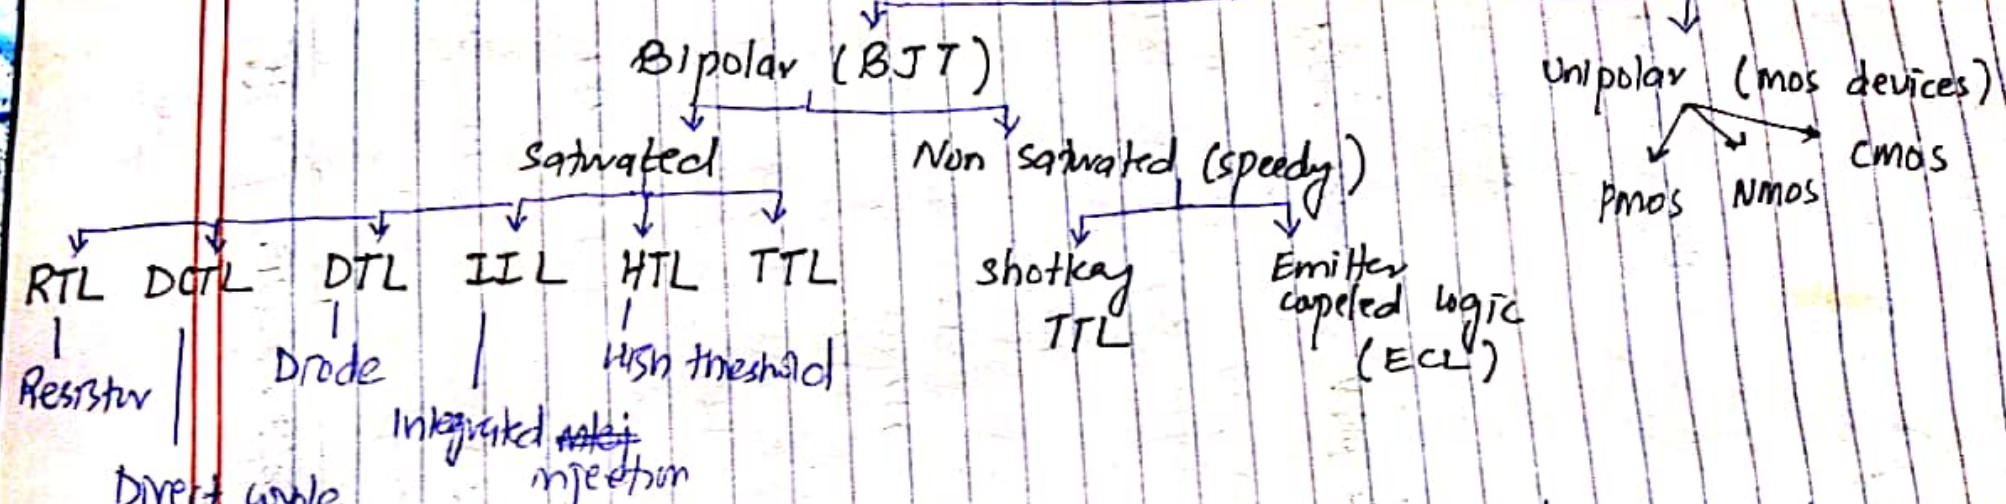 Bipolar (BJT)
Unipolar (mos devices)
Saturated
Non saturated (speedy)
Pmos
Nmos
Cmos
RTL
DCTL
DTL
IIL
HTL
TTL
Shotkay
TTL
Emitter
capeled logic
(ECL)
Resistor
Diode
High threshold
Integrated
injection
Direct couple